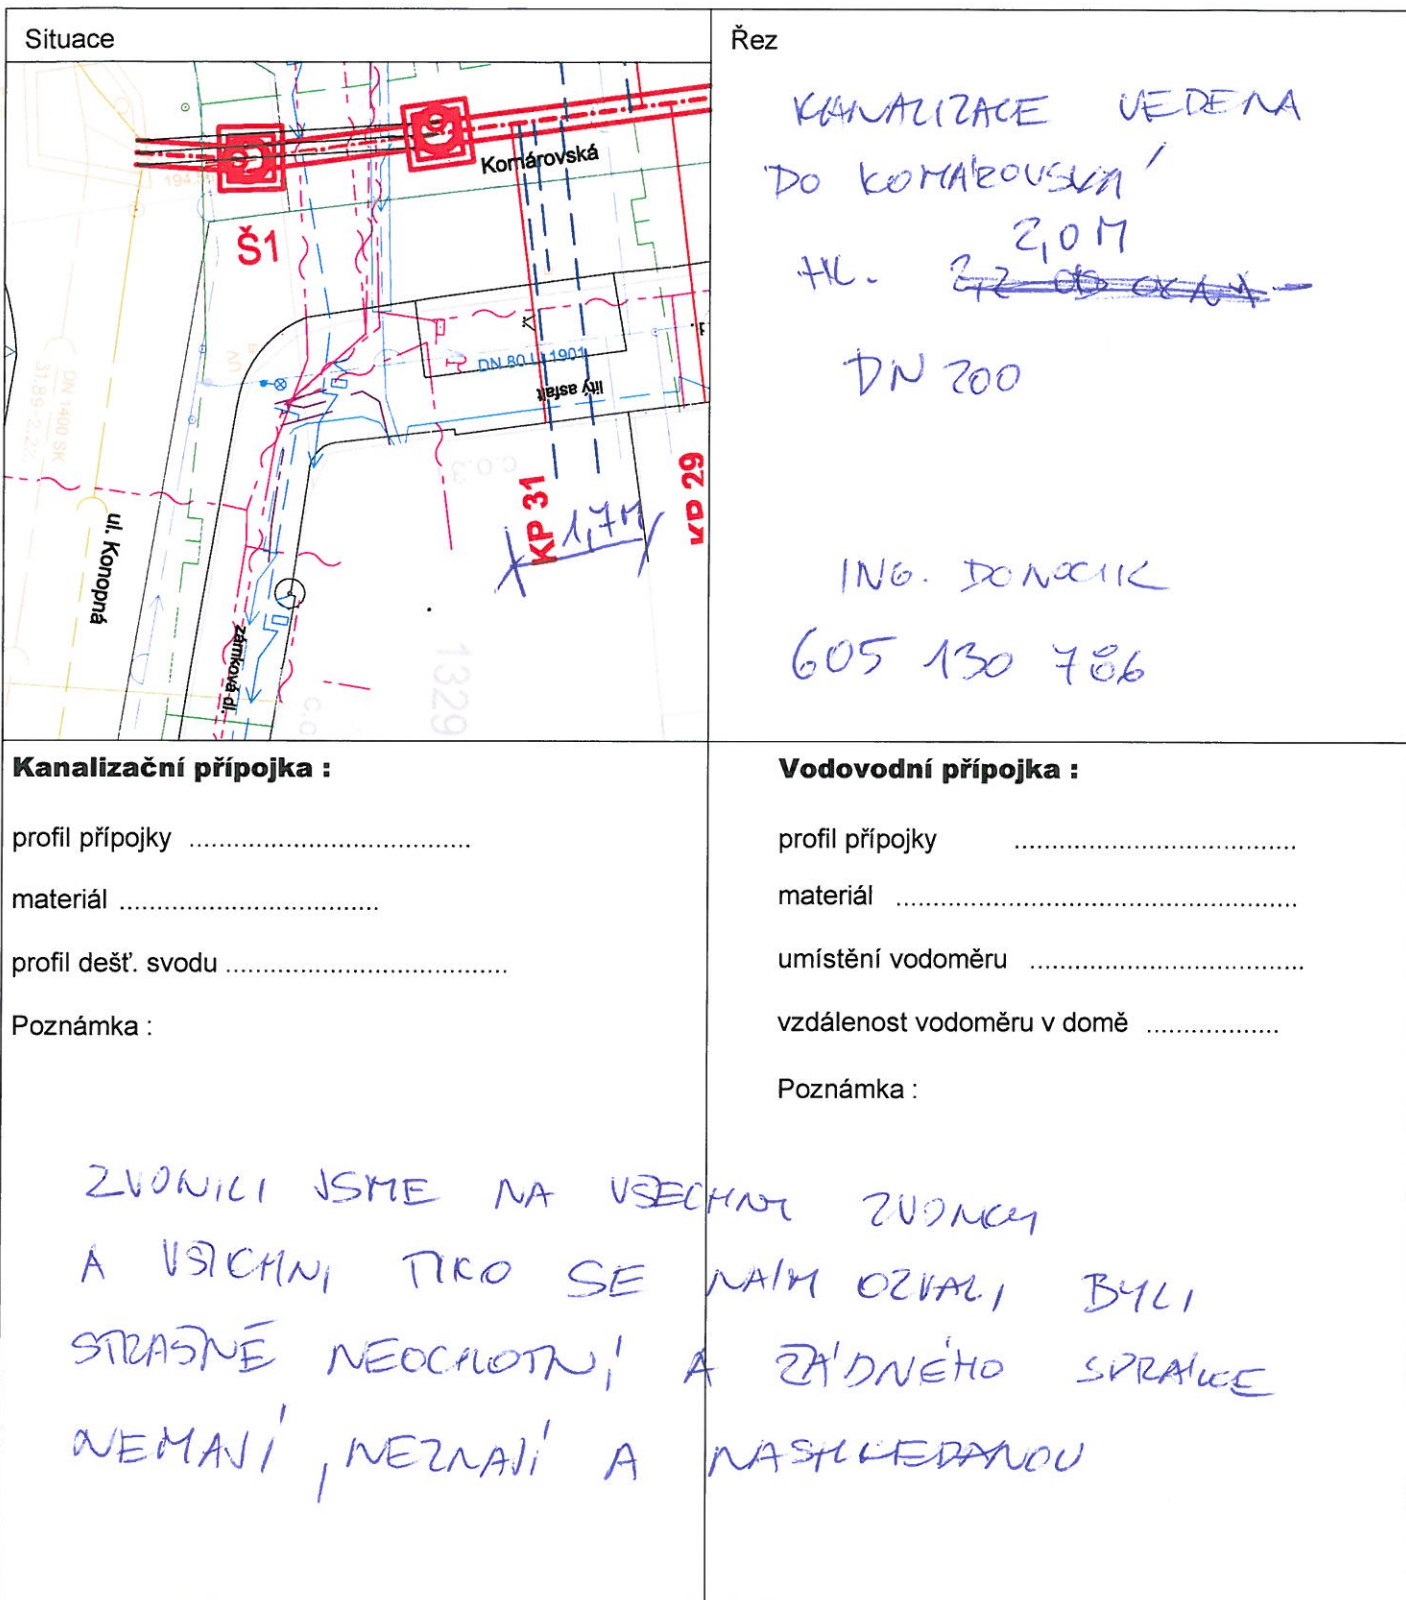 Situace
Řez
Komárovská
Š1
DN 80 LI 1901
litý asfalt
DN 1400 SK
KP 31
KP 29
1,7M
ul. Konopná
zámková dl.
1329
KANALIZACE VEDENA
DO KOMÁROVSKÁ
2,0 M
HL.
DN 200
ING.
605 130 786
Kanalizační přípojka :
profil přípojky ......................................
materiál ...................................
profil dešť. svodu ......................................
Poznámka :
Vodovodní přípojka :
profil přípojky ......................................
materiál ......................................................
umístění vodoměru .....................................
vzdálenost vodoměru v domě ..................
Poznámka :
ZVONILI JSME NA VŠECHNY ZVONKY
A VŠICHNI, TIKO SE NÁM OZVALI, BYLI
STRAŠNĚ NEOCHOTNÍ A ŽÁDNÉHO SPRÁVCE
NEMAJÍ, NEZNAJÍ A NASHLEDANOU